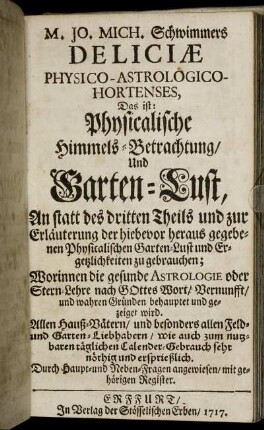 M. JO. MICH. Schwimmers
DELICIÆ
PHYSICO-ASTROLOGICO-
HORTENSES,
Das ist:
Physicalische
Himmels-Betrachtung/
Und
Garten-Lust,
An statt des dritten Theils und zur
Erläuterung der hiebevor heraus gegebe-
nen Physicalischen Garten-Lust und Er-
getzlichkeiten zu gebrauchen;
Worinnen die gesunde ASTROLOGIE oder
Stern-Lehre nach GOttes Wort/ Vernunfft/
und wahren Gründen behauptet und ge-
zeiget wird.
Allen Hauß-Vätern/ und besonders allen Feld-
und Garten-Liebhabern/ wie auch zum nutz-
baren täglichen Calender-Gebrauch sehr
nöthig und ersprießlich.
Durch Haupt-und Neben-Fragen angewiesen/ mit ge-
hörigen Register.
ERFFURT/
In Verlag der Stösselischen Erben/ 1717.